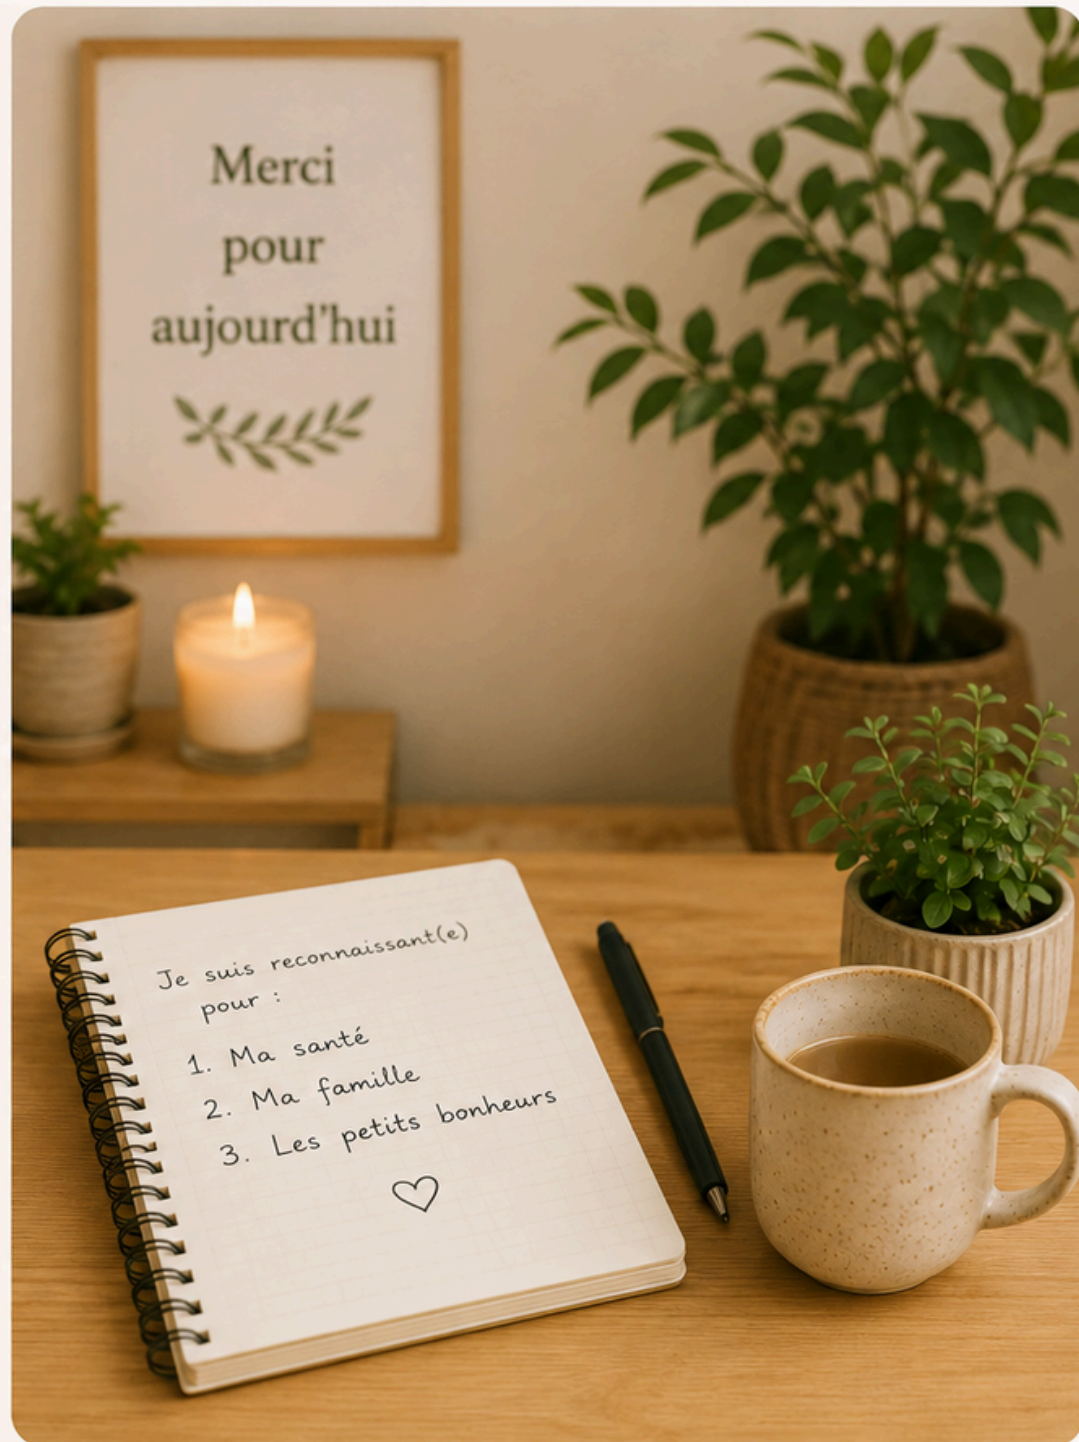 Merci
pour
aujourd'hui
Je suis reconnaissant(e)
pour :
1. Ma santé
2. Ma famille
3. Les petits bonheurs